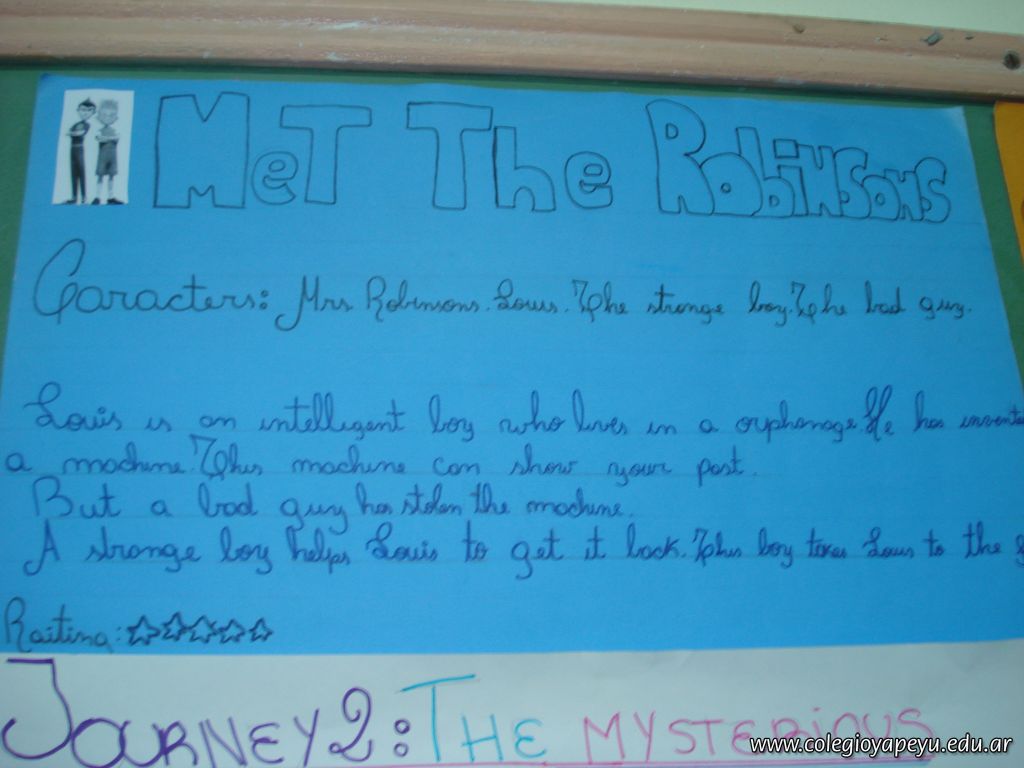 MeT The RobiNsoNs
Caracters: Mrs Robinsons. Louis. The strange boy. The bad guy.
Louis is an intelligent boy who lives in a orphanage. He has
a machine. This machine can show your past.
But a bad guy has stolen the machine.
A strange boy helps Louis to get it back. This boy takes Louis to the
Raiting:
JOURNEY 2: THE MYSTERIOUS
www.colegioyapeyu.edu.ar